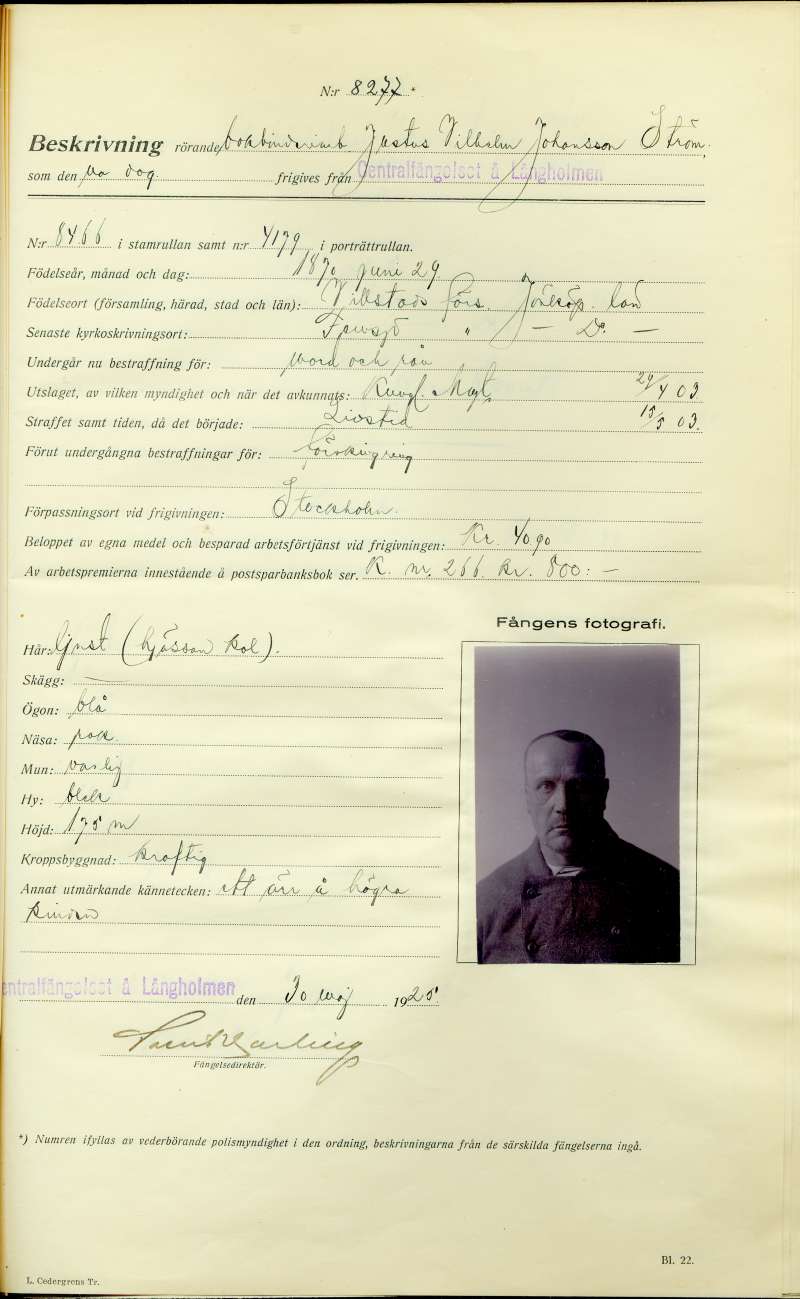 N:r 8277 *
Beskrivning rörande Justus Vilhelm Johansson Ström,
som den dag frigives från Centralfängelset å Långholmen
N:r 8466 i stamrullan samt n:r 4179 i porträttrullan.
Födelseår, månad och dag: 1870 juni 29
Födelseort (församling, härad, stad och län): Villstads förs. Jönköp. län
Senaste kyrkoskrivningsort: " — Do. —
Undergår nu bestraffning för: Mord och rån
Utslaget, av vilken myndighet och när det avkunnats: Kungl. Maj:t 29/4 03
Straffet samt tiden, då det började: Livstid 15/5 03.
Förut undergångna bestraffningar för: förskingring
Förpassningsort vid frigivningen: Stockholm.
Beloppet av egna medel och besparad arbetsförtjänst vid frigivningen: Kr. 40 90
Av arbetspremierna innestående å postsparbanksbok ser. K. nr. 266. kr. 800: —
Fångens fotografi.
Hår: ljust (hjässan kal).
Skägg: —
Ögon: blå
Näsa: rak
Mun: vanlig
Hy: blek
Höjd: 175 m
Kroppsbyggnad: kraftig
Annat utmärkande kännetecken: ett ärr å högra
kinden
Centralfängelset å Långholmen den 30 maj 1925.
Fängelsedirektör.
*) Numren ifyllas av vederbörande polismyndighet i den ordning, beskrivningarna från de särskilda fängelserna ingå.
Bl. 22.
L. Cedergrens Tr.